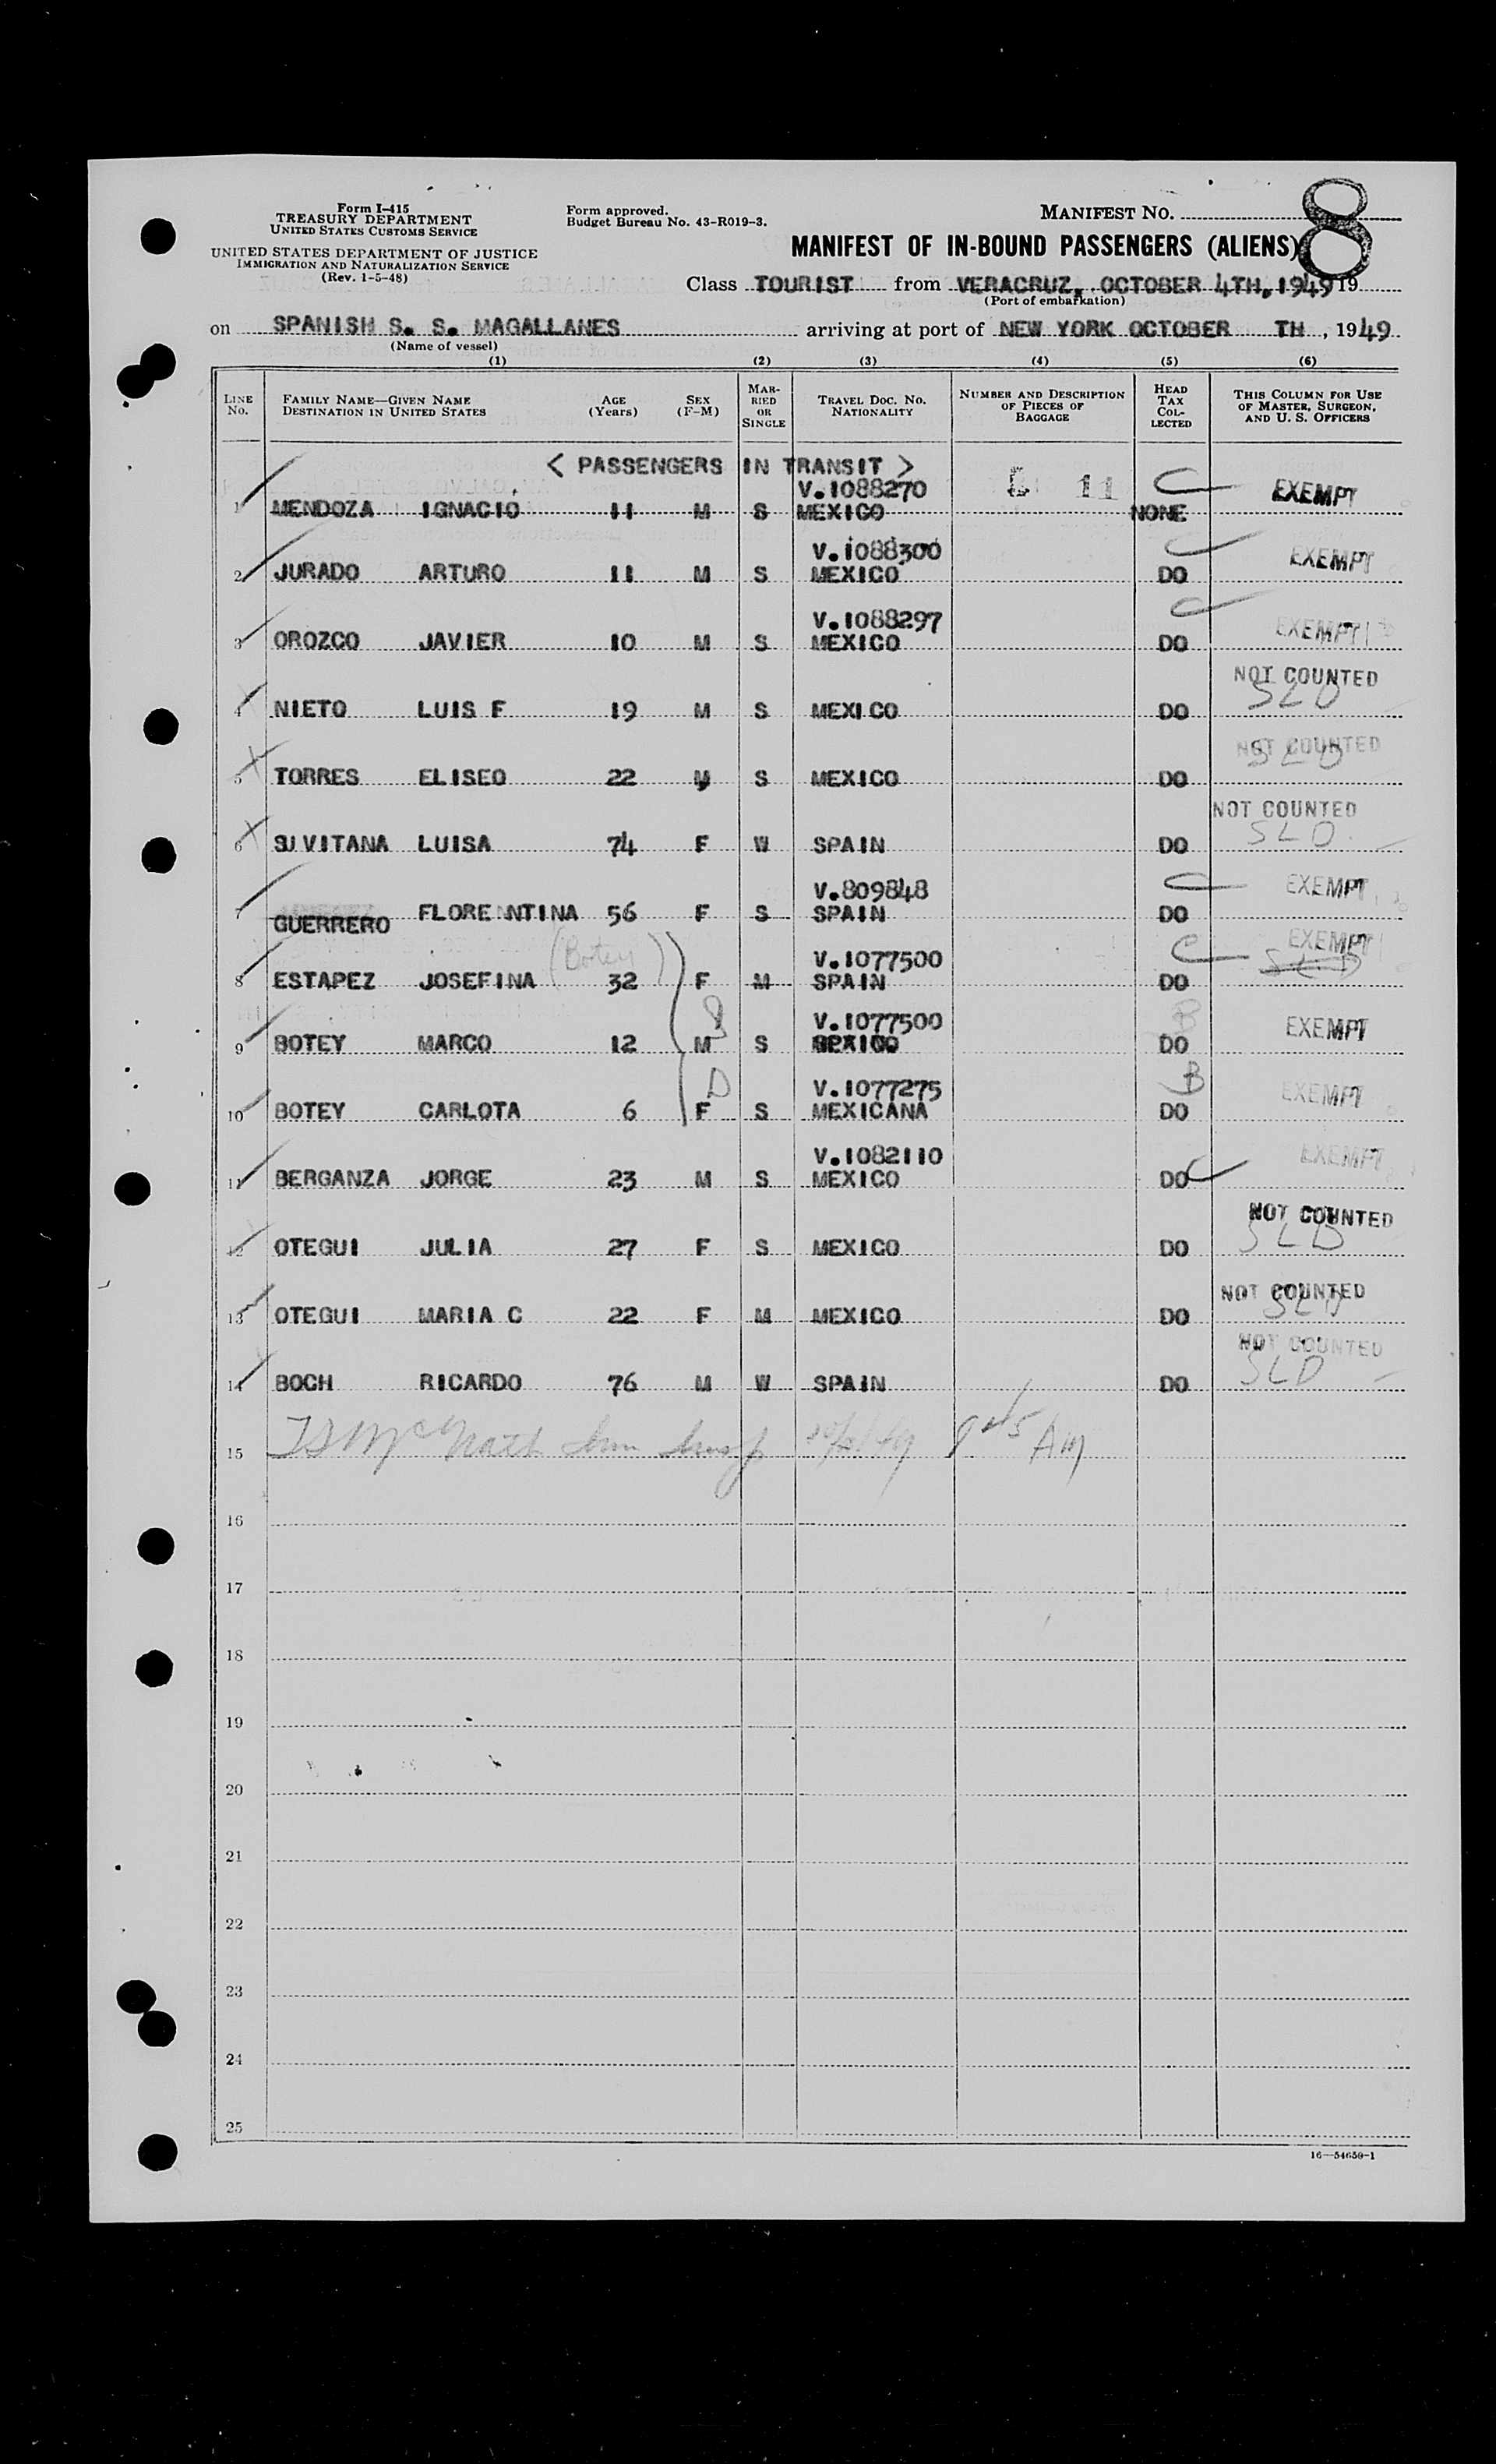 Form I-415
TREASURY DEPARTMENT
UNITED STATES CUSTOMS SERVICE
UNITED STATES DEPARTMENT OF JUSTICE
IMMIGRATION AND NATURALIZATION SERVICE
(Rev. 1-5-48)
Form approved.
Budget Bureau No. 43-R019-3.
MANIFEST NO. 8
MANIFEST OF IN-BOUND PASSENGERS (ALIENS)
Class TOURIST from VERACRUZ, OCTOBER 4TH, 1949 19
(Port of embarkation)
on SPANISH S. S. MAGALLANES arriving at port of NEW YORK OCTOBER TH, 1949
(Name of vessel)
(1) (2) (3) (4) (5) (6)
LINE NO. FAMILY NAME—GIVEN NAME DESTINATION IN UNITED STATES AGE (Years) SEX (F-M) MARRIED OR SINGLE TRAVEL DOC. NO. NATIONALITY NUMBER AND DESCRIPTION OF PIECES OF BAGGAGE HEAD TAX COLLECTED THIS COLUMN FOR USE OF MASTER, SURGEON, AND U. S. OFFICERS
< PASSENGERS IN TRANSIT >
V.1088270 11 C EXEMPT
1 MENDOZA IGNACIO 11 M S MEXICO NONE
V.1088300 C EXEMPT
2 JURADO ARTURO 11 M S MEXICO DO
V.1088297 C EXEMPT
3 OROZCO JAVIER 10 M S MEXICO DO
NOT COUNTED
4 NIETO LUIS F 19 M S MEXICO DO SLD
NOT COUNTED
5 TORRES ELISEO 22 M S MEXICO DO SLD
NOT COUNTED
6 SUVITANA LUISA 74 F W SPAIN DO SLD
V.809848 C EXEMPT
7 GUERRERO FLORENTINA 56 F S SPAIN DO
(Botey) V.1077500 C EXEMPT
8 ESTAPEZ JOSEFINA 32 F M SPAIN DO SLD
V.1077500 B EXEMPT
9 BOTEY MARCO 12 M S DO
D V.1077275 B EXEMPT
10 BOTEY CARLOTA 6 F S MEXICANA DO
V.1082110 EXEMPT
11 BERGANZA JORGE 23 M S MEXICO DO C
NOT COUNTED
12 OTEGUI JULIA 27 F S MEXICO DO SLD
NOT COUNTED
13 OTEGUI MARIA C 22 F M MEXICO DO SLD
NOT COUNTED
14 BOCH RICARDO 76 M W SPAIN DO SLD
15 9 45 AM
16
17
18
19
20
21
22
23
24
25
16—54659-1